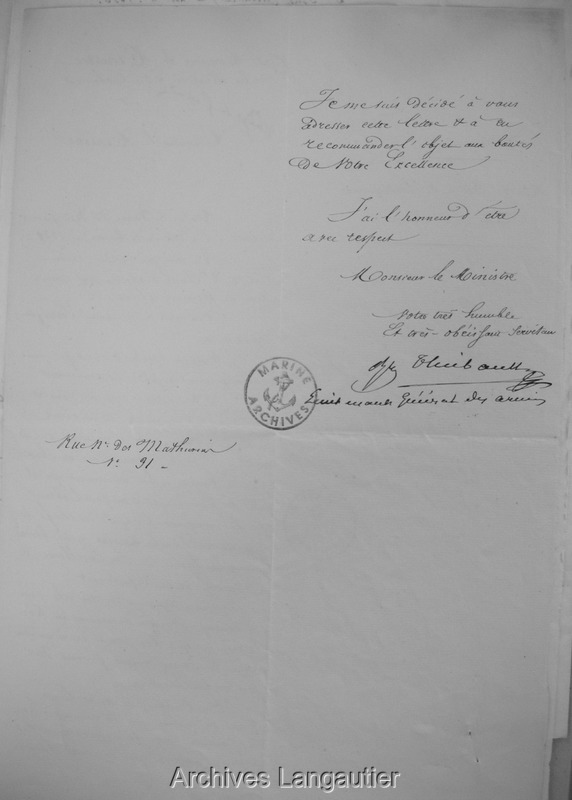 Je me suis décidé à vous
adresser cette lettre & à en
recommander l'objet aux bontés
de Votre Excellence
J'ai l'honneur d'être
avec respect
Monsieur le Ministre
Votre très humble
Et très-obéissant Serviteur
Thiébault
Lieutenant Général des armées
MARINE
ARCHIVES
Rue Nve des Mathurins
N° 31 -
Archives Langautier